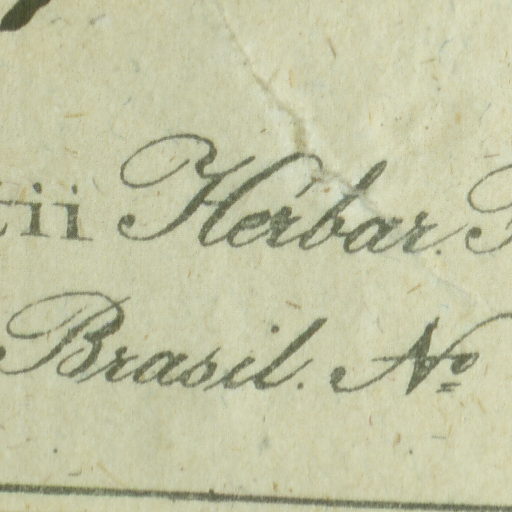 tii Herbar.
Brasil. No